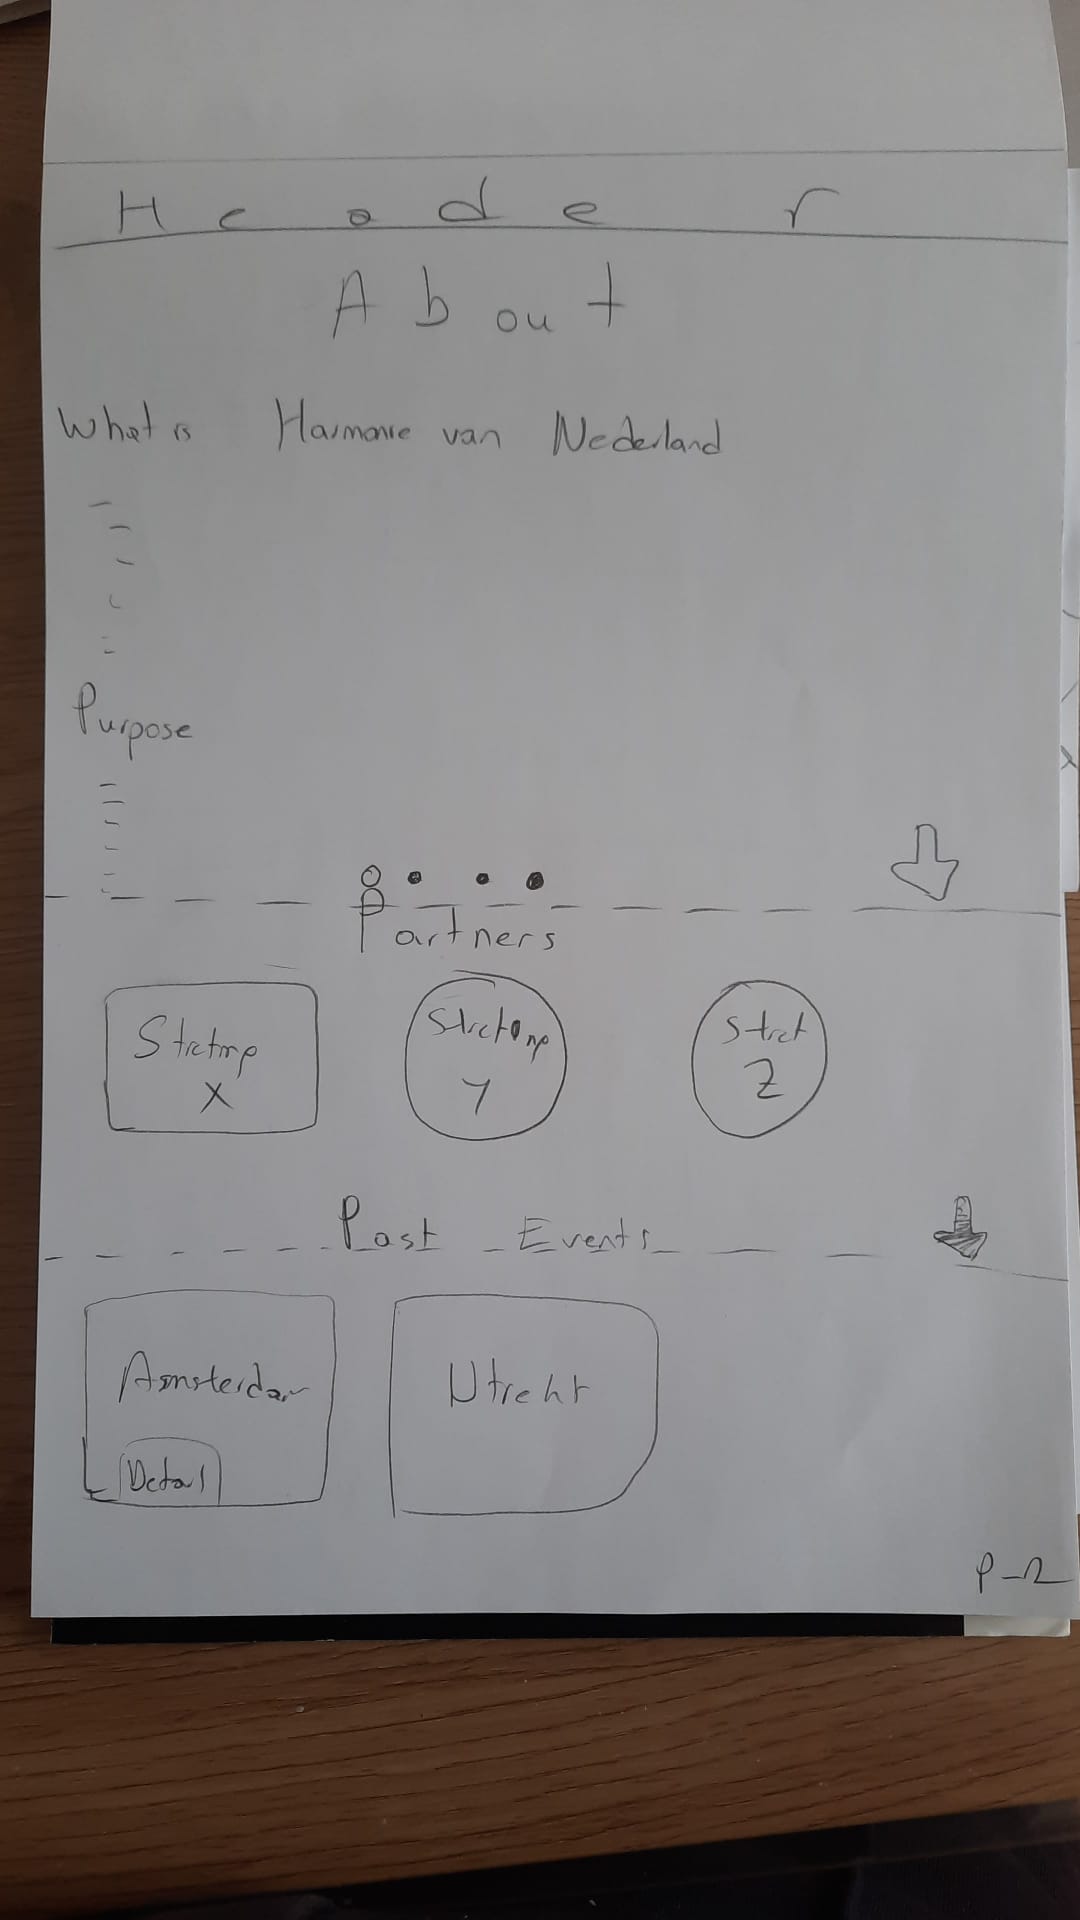 Header
About
What is Harmonie van Nederland
Purpose
Partners
X
Y
Z
Past Events
Amsterdam
Detail
Utreht
P-2